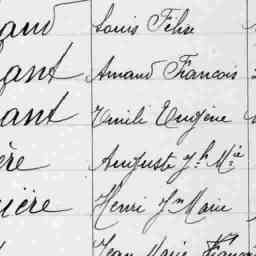 Louis Félix
gant Amand François
ant Emile Eugène
ère Auguste Jh Mie
ière Henri Jn Marie
Jean Marie Franço